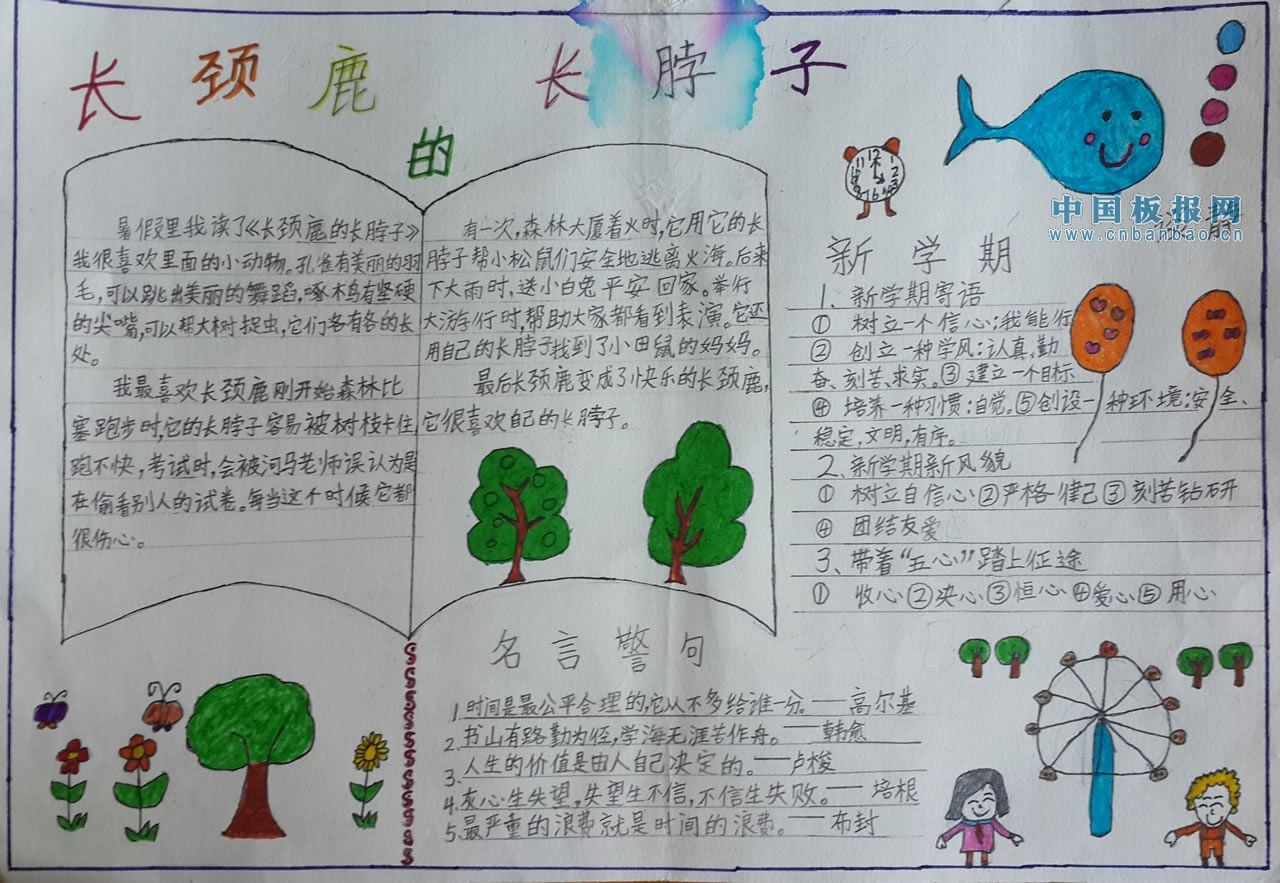 长颈鹿的长脖子
中国板报网
www.cnbanbao.cn
暑假里我读了《长颈鹿的长脖子》
我很喜欢里面的小动物。孔雀有美丽的羽
毛，可以跳出美丽的舞蹈，啄木鸟有坚硬
的尖嘴，可以帮大树捉虫，它们各有各的长
处。
我最喜欢长颈鹿刚开始森林比
塞跑步时，它的长脖子容易被树枝卡住，
跑不快，考试时，会被河马老师误认为是
在偷看别人的试卷。每当这个时候它都
很伤心。
有一次，森林大厦着火时，它用它的长
脖子帮小松鼠们安全地逃离火海。后来
下大雨时，送小白兔平安回家。举行
大游行时，帮助大家都看到表演。它还
用自己的长脖子找到了小田鼠的妈妈。
最后长颈鹿变成了快乐的长颈鹿，
它很喜欢自己的长脖子。
11 12 1
新学期
1、新学期寄语
① 树立一个信心：我能行
② 创立一种学风：认真、勤
奋、刻苦、求实。③ 建立一个目标
④ 培养一种习惯：自觉。⑤创设一种环境：安全、
稳定，文明，有序。
2、新学期新风貌
① 树立自信心②严格律己③刻苦钻研
④ 团结友爱
3、带着“五心”踏上征途
① 收心②决心③恒心④爱心⑤用心
名言警句
1.时间是最公平合理的，它从不多给谁一分。——高尔基
2.书山有路勤为径，学海无涯苦作舟。——韩愈
3.人生的价值是由人自己决定的。——卢梭
4.灰心生失望，失望生不信，不信生失败。——培根
5.最严重的浪费就是时间的浪费。——布封